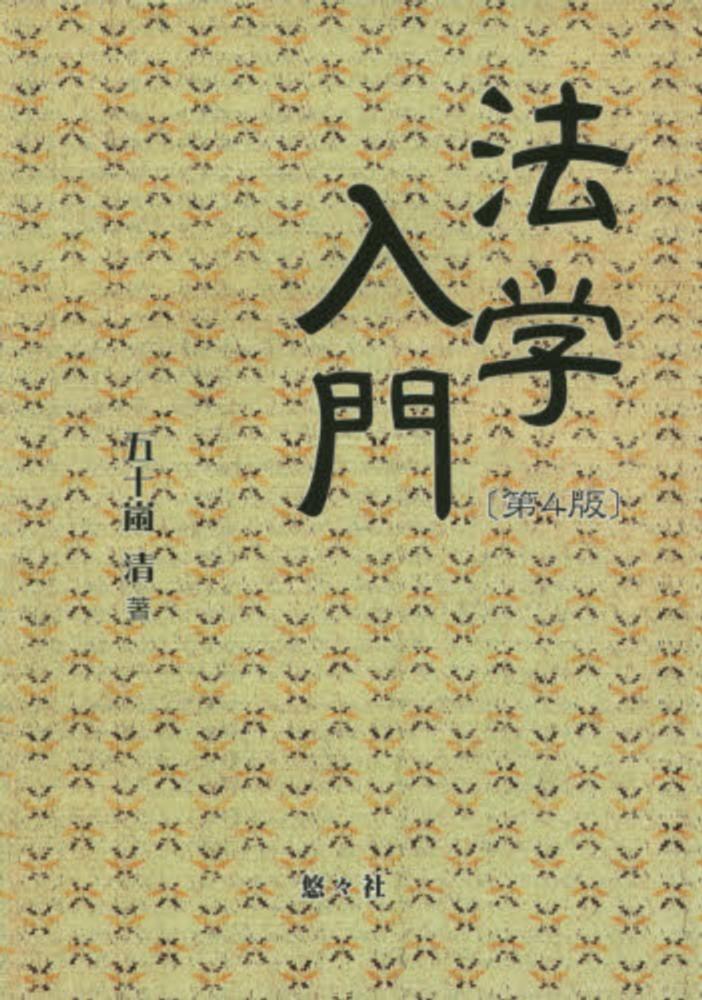 法学
入門
〔第4版〕
五十嵐 清 著
悠々社